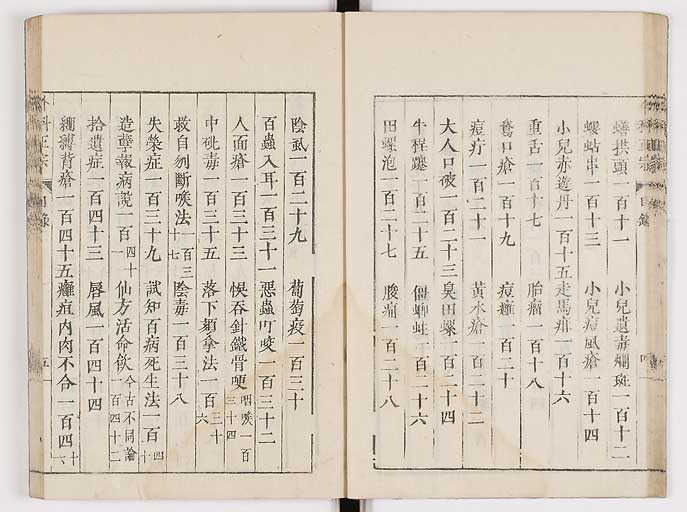 蟮拱頭一百十一　小兒遺毒爛斑一百十二
螻蛄串一百十三　小兒痘風瘡一百十四
小兒赤遊丹一百十五走馬疳一百十六
重舌一百十七　胎瘤一百十八
鵞口瘡一百十九　痘癰一百二十
痘疔一百二十一　黃水瘡一百二十二
大人口破一百二十三臭田螺一百二十四
牛程蹇一百二十五　僵蛀一百二十六
田螺泡一百二十七　痠痛一百二十八
陰虱一百二十九　葡萄疫一百三十
百蟲入耳一百三十一惡蟲叮咬一百三十二
人面瘡一百三十三　悞吞針鐵骨哽咽喉一百三十四
中砒毒一百三十五　落下頦拿法一百三十六
救自刎斷喉法一百三十七陰毒一百三十八
失榮症一百三十九　試知百病死生法一百四十
造孽報病說一百四十一仙方活命飲今古不同論一百四十二
拾遺症一百四十三　唇風一百四十四
纏縛背瘡一百四十五癰疽內肉不合一百四十六
外科正宗　目錄　五
目錄